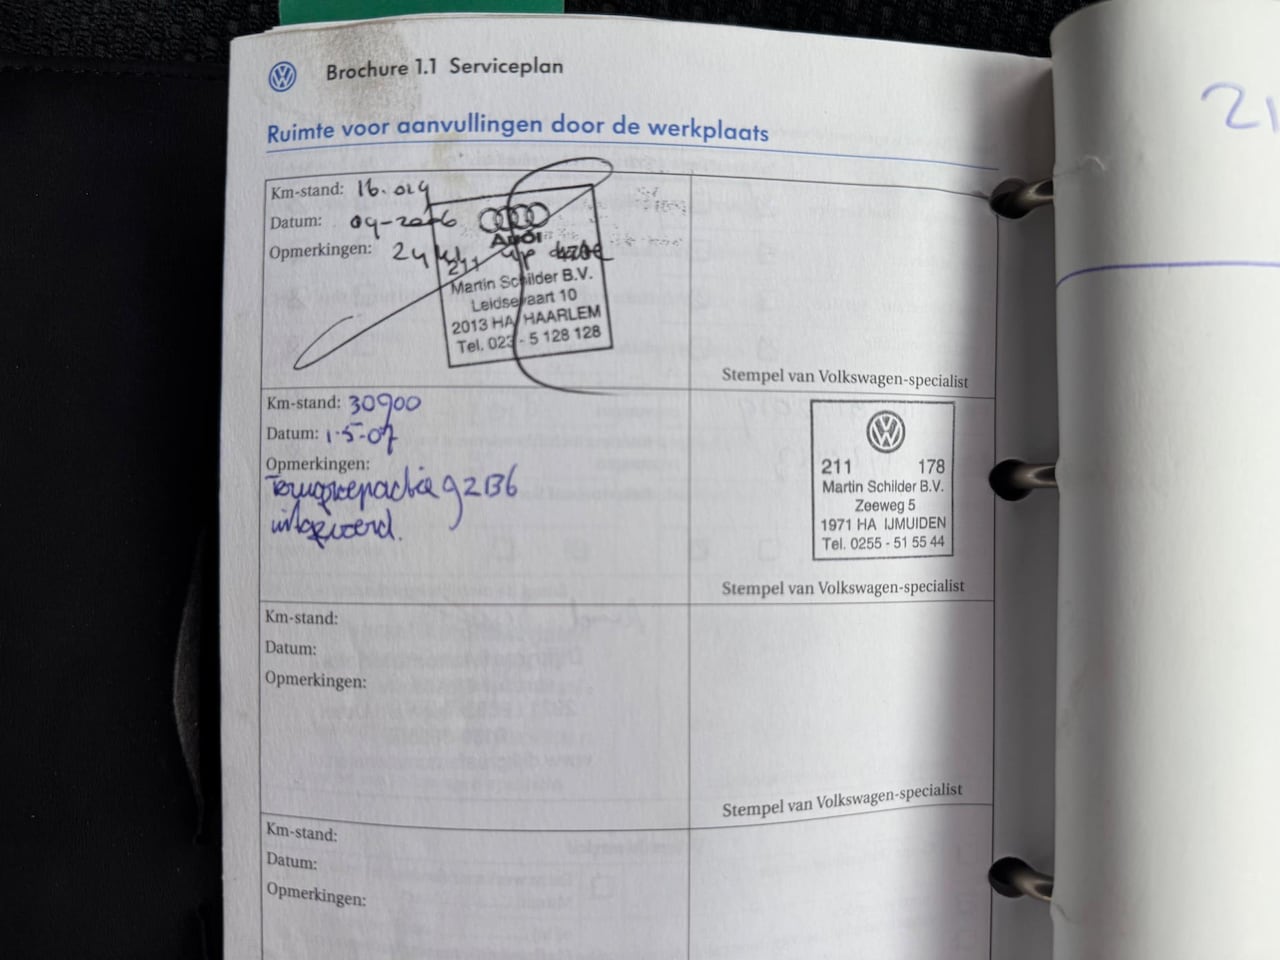 Brochure 1.1 Serviceplan
Ruimte voor aanvullingen door de werkplaats
Km-stand: 16.019
Datum: 09-2006
Opmerkingen:
Audi
211
Martin Schilder B.V.
Leidsevaart 10
2013 HA HAARLEM
Tel. 023 - 5 128 128
Stempel van Volkswagen-specialist
Km-stand: 30900
Datum: 1-5-07
Opmerkingen:
Terugroepactie 92B6
uitgevoerd.
211 178
Martin Schilder B.V.
Zeeweg 5
1971 HA IJMUIDEN
Tel. 0255 - 51 55 44
Stempel van Volkswagen-specialist
Km-stand:
Datum:
Opmerkingen:
Stempel van Volkswagen-specialist
Km-stand:
Datum:
Opmerkingen:
21